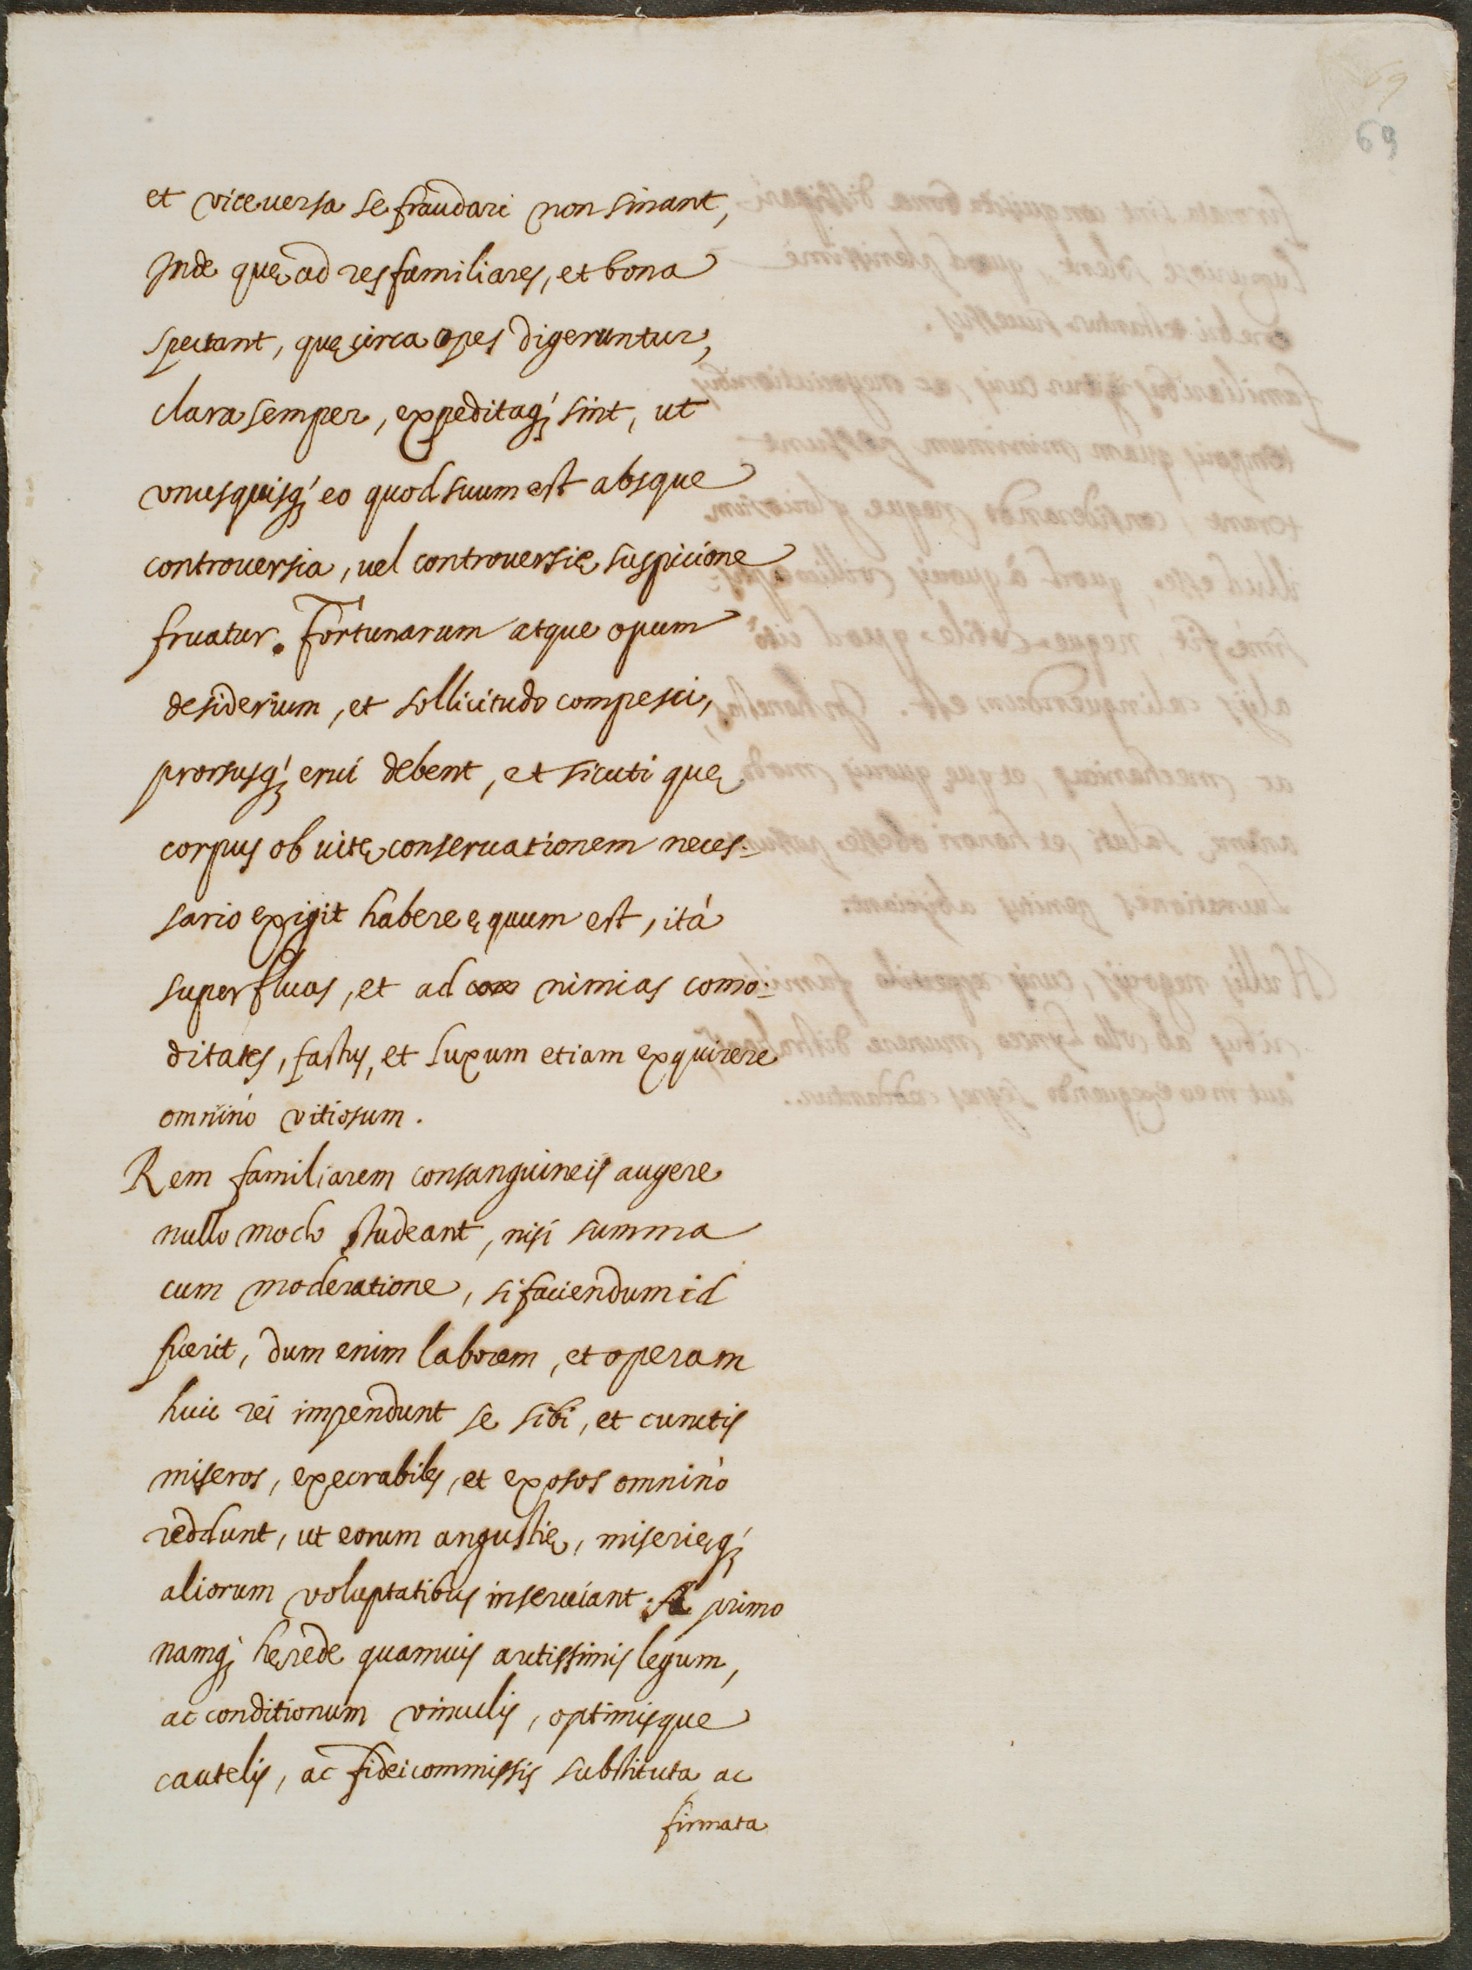 69
69
et viceuersa se fraudari non sinant,
Inde quę ad res familiares, et bona
spectant, quę circa opes digeruntur,
clara semper, expeditaq; sint, ut
vnusquisq; eo quod suum est absque
controuersia, uel controuersię suspicione
fruatur. Fortunarum atque opum
desiderium, et sollicitudo compesci,
prorsusq; erui debent, et sicuti quę
corpus ob uitę conseruationem neces-
sario exigit habere ęquum est, ità
superfluas, et ad nimias como-
ditates, fastus, et luxum etiam exquirere
omninò vitiosum.
Rem familiarem consanguineis augere
nullo modo studeant, nisi summa
cum moderatione, si faciendum id
fuerit, dum enim laborem, et operam
huic rei impendunt se sibi, et cunctis
miseros, execrabiles, et exosos omninò
reddunt, ut eorum angustię, miserięq;
aliorum voluptatibus inseruiant. A primo
namq; hęrede quamuis arctissimis legum,
ac conditionum vinculis, optimisque
cautelis, ac fideicommissis substituta ac
firmata